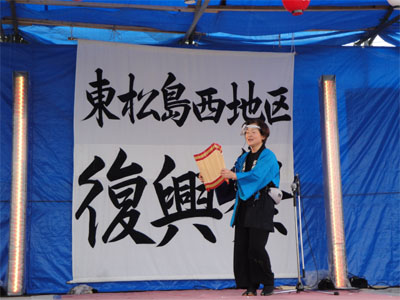 東松島西地区
復興